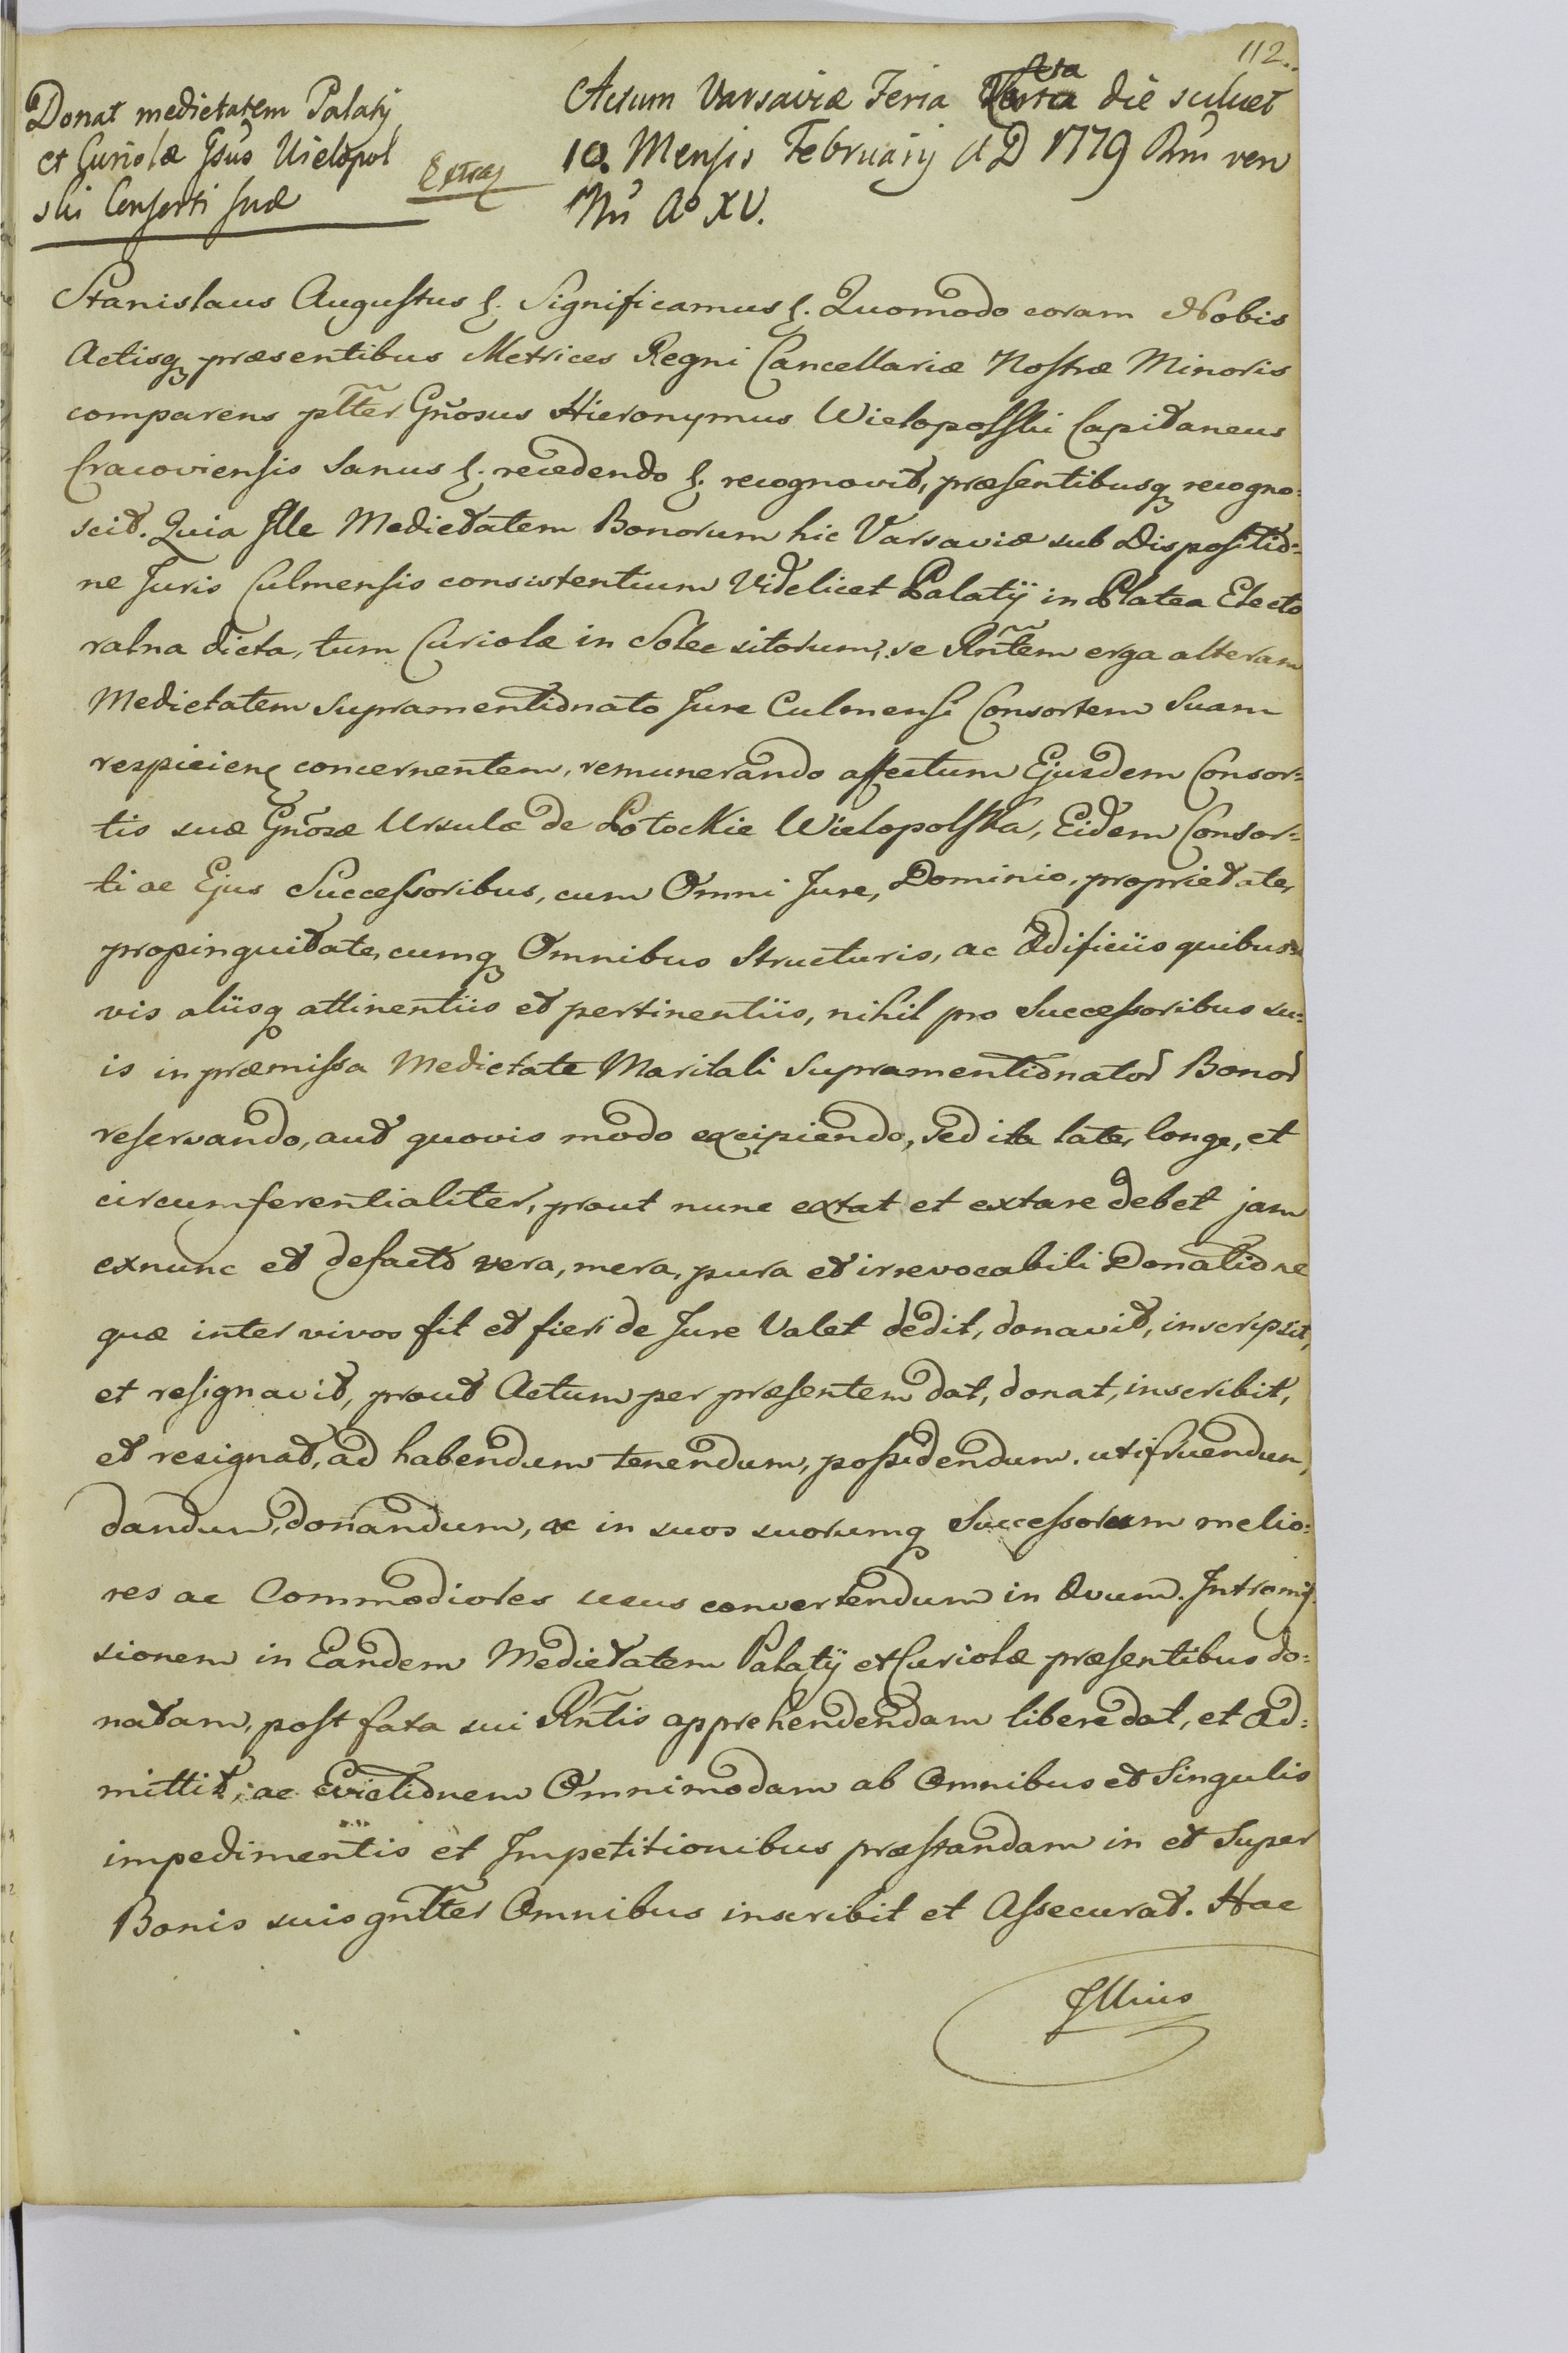 112.
Donat medietatem Palatij
et Curiolæ Gsus Wielopol
ski Consorti suæ
Extra
Actum Varsaviæ Feria 4ta die sciliet
10. Mensis Februarij A D 1779 Rm ven
Nri Ao XV.
Stanislaus Augustus &. Significamus &. Quomodo coram Nobis
Actisq præsentibus Metrices Regni Cancellariæ Nostræ Minoris
comparens pltter Gnosus Hieronymus Wielopolski Capitaneus
Cracoviensis sanus &. recedendo &. recognovit, præsentibusq recogno:
scit. Quia Ille Medietatem Bonorum hic Varsaviæ sub Dispositio:
ne Juris Culmensis consistentium Videlicet Palatij in Platea Electo
ralna dicta, tum Curiolæ in Solec sitorum, se Rntem erga alteram
Medietatem supramentionato Jure Culmensi Consortem Suam
respicien concernentem, remunerando affectum Ejusdem Consor:
tis suæ Gnosæ Ursulæ de Potockie Wielopolska, Eidem Consor:
ti ac Ejus Successoribus, cum Omni Jure, Dominio, proprietate,
propinquitate, cumq Omnibus Structuris, ac Ædificiis quibus
vis aliisq attinentiis et pertinentiis, nihil pro Successoribus su:
is in præmissa Medietate Maritali supramentionator Bonor
reservando, aut quovis modo excipiendo, sed ita late, longe, et
circumferentialiter, prout nunc extat et extare debet jam
exnunc et defacto vera, mera, pura et irrevocabili Donatione
quæ inter vivos fit et fieri de Jure Valet dedit, donavit, inscripsit,
et resignavit, prout Actum per præsentem dat, donat, inscribit,
et resignat, ad habendum tenendum, possidendum, utifruendum,
dandum, donandum, ac in suos suorumq Successorum melio:
res ac Commodiores usus convertendum in Ævum. Intromis
sionem in Eandem Medietatem Palatij et Curiolæ præsentibus do:
natam, post fata sui Rntis apprehendendam libere dat, et ad:
mittit, ac Evictionem Omnimodam ab Omnibus et Singulis
impedimentis et Impetitionibus præstandam in et Super
Bonis suis gnltter Omnibus inscribit et Assecurat. Hac
Illius